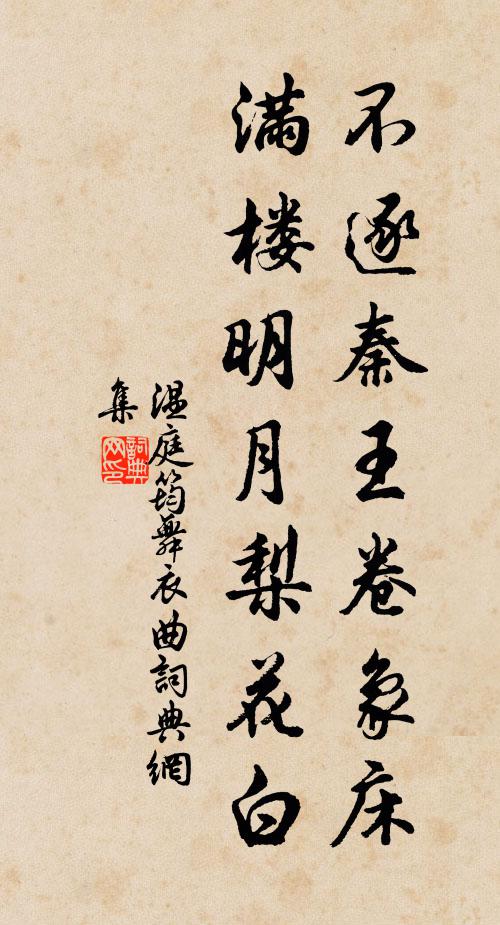 不逐秦王卷象床
满楼明月梨花白
温庭筠舞衣曲詞典網
集
詞典网印